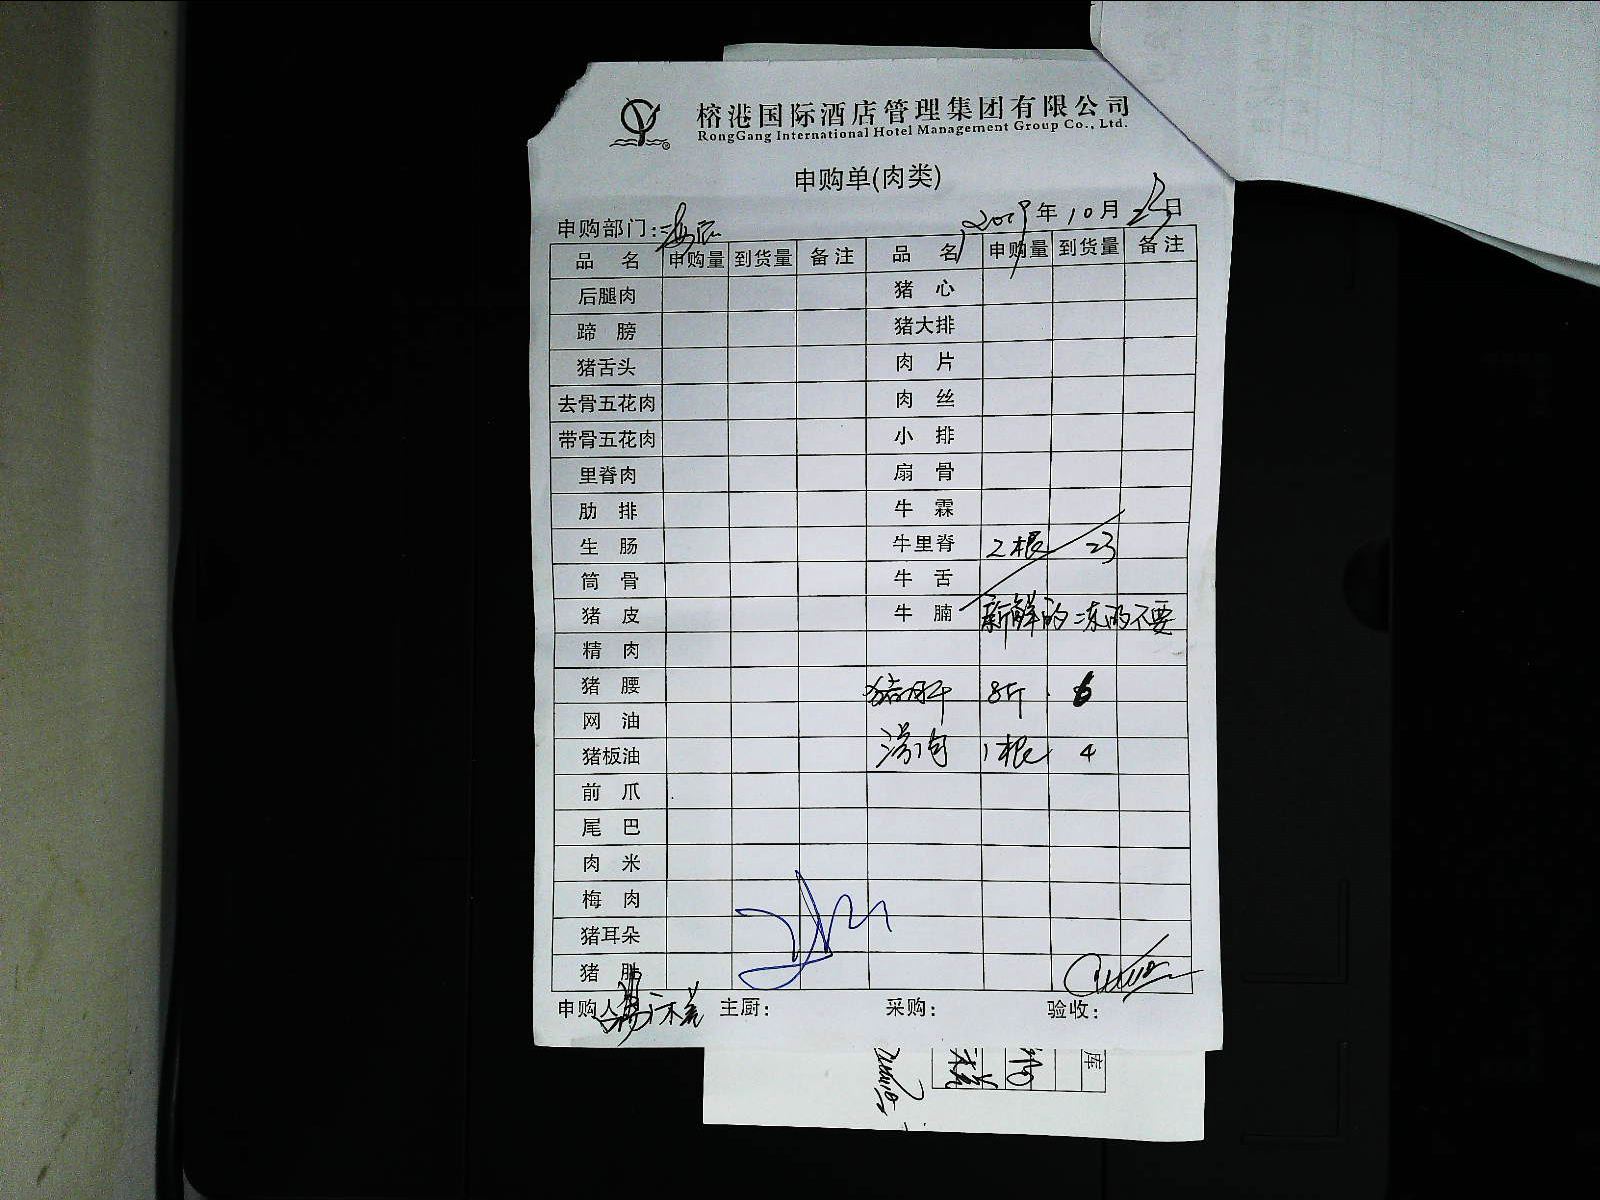 榕港国际酒店管理集团有限公司
RongGang International Hotel Management Group Co., Ltd.
申购单(肉类)
申购部门: 2019年10月23日
品名 申购量 到货量 备注 品名 申购量 到货量 备注
后腿肉 猪心
蹄膀 猪大排
猪舌头 肉片
去骨五花肉 肉丝
带骨五花肉 小排
里脊肉 扇骨
肋排 牛霖
生肠 牛里脊 2根 23
筒骨 牛舌
猪皮 牛腩 新鲜的 冻的不要
精肉
猪腰 猪肝 8斤 6
网油
猪板油 1根 4
前爪
尾巴
肉米
梅肉
猪耳朵
猪肚
申购人 主厨: 采购: 验收:
库